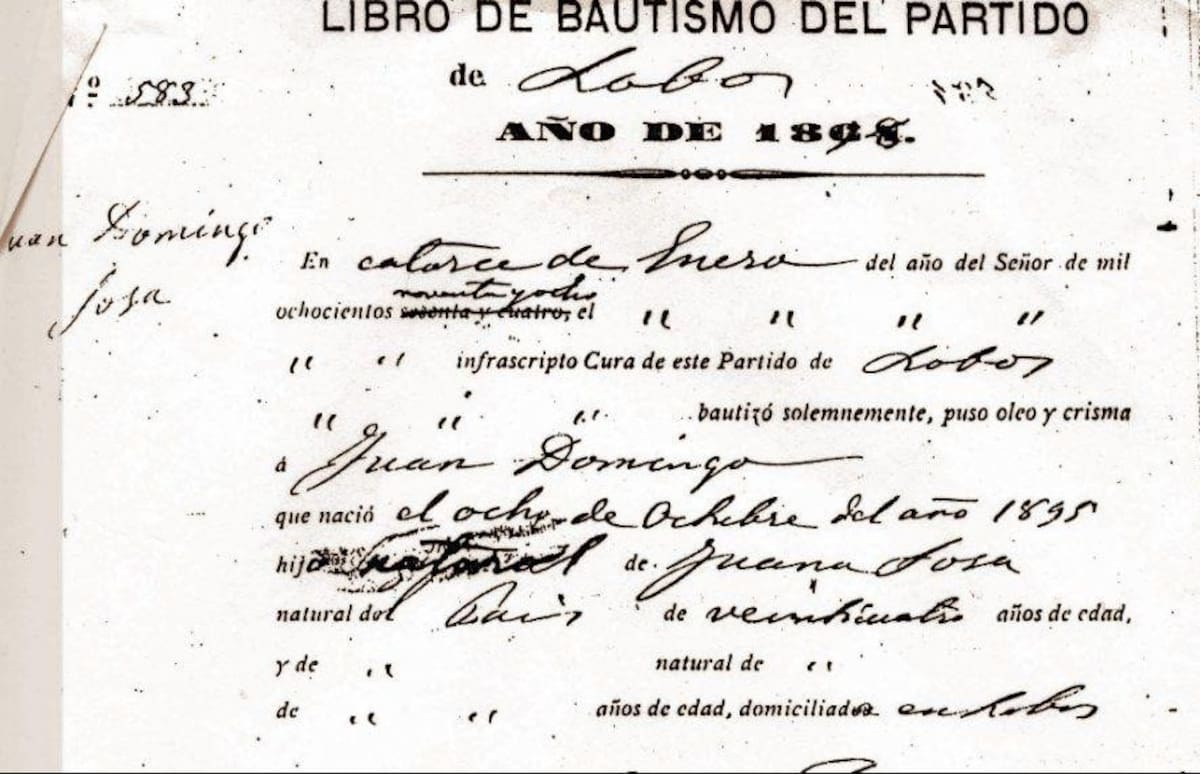 LIBRO DE BAUTISMO DEL PARTIDO
de Lobos
º 583
AÑO DE 1898.
uan Domingo
Sosa
En catorce de Enero del año del Señor de mil
noventa y ocho
ochocientos sesenta y cuatro, el " " " "
" " infrascripto Cura de este Partido de Lobos
" " " bautizó solemnemente, puso oleo y crisma
á Juan Domingo
que nació el ocho de Octubre del año 1895
hijo natural de Juana Sosa
natural del Pais de veinticuatro años de edad,
y de " natural de "
de " " años de edad, domiciliados en Lobos